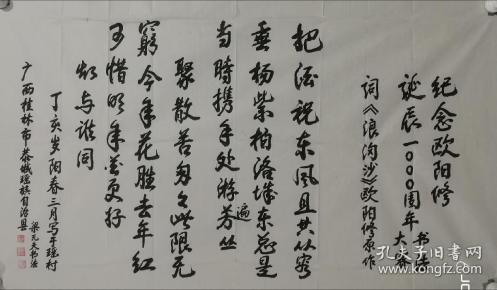 纪念欧阳修
诞辰一000周年书法大赛
词《浪淘沙》欧阳修原作
把酒祝东风且共从容
垂杨紫柏洛城东总是
当時携手处游遍芳丛
聚散苦匆匆此限无
窮今年花胜去年红
可惜明年花更好
知与谁同
丁亥岁阳春三月写于瑶村
广西桂林市恭城瑶族自治县
梁 书法
孔夫子旧书网